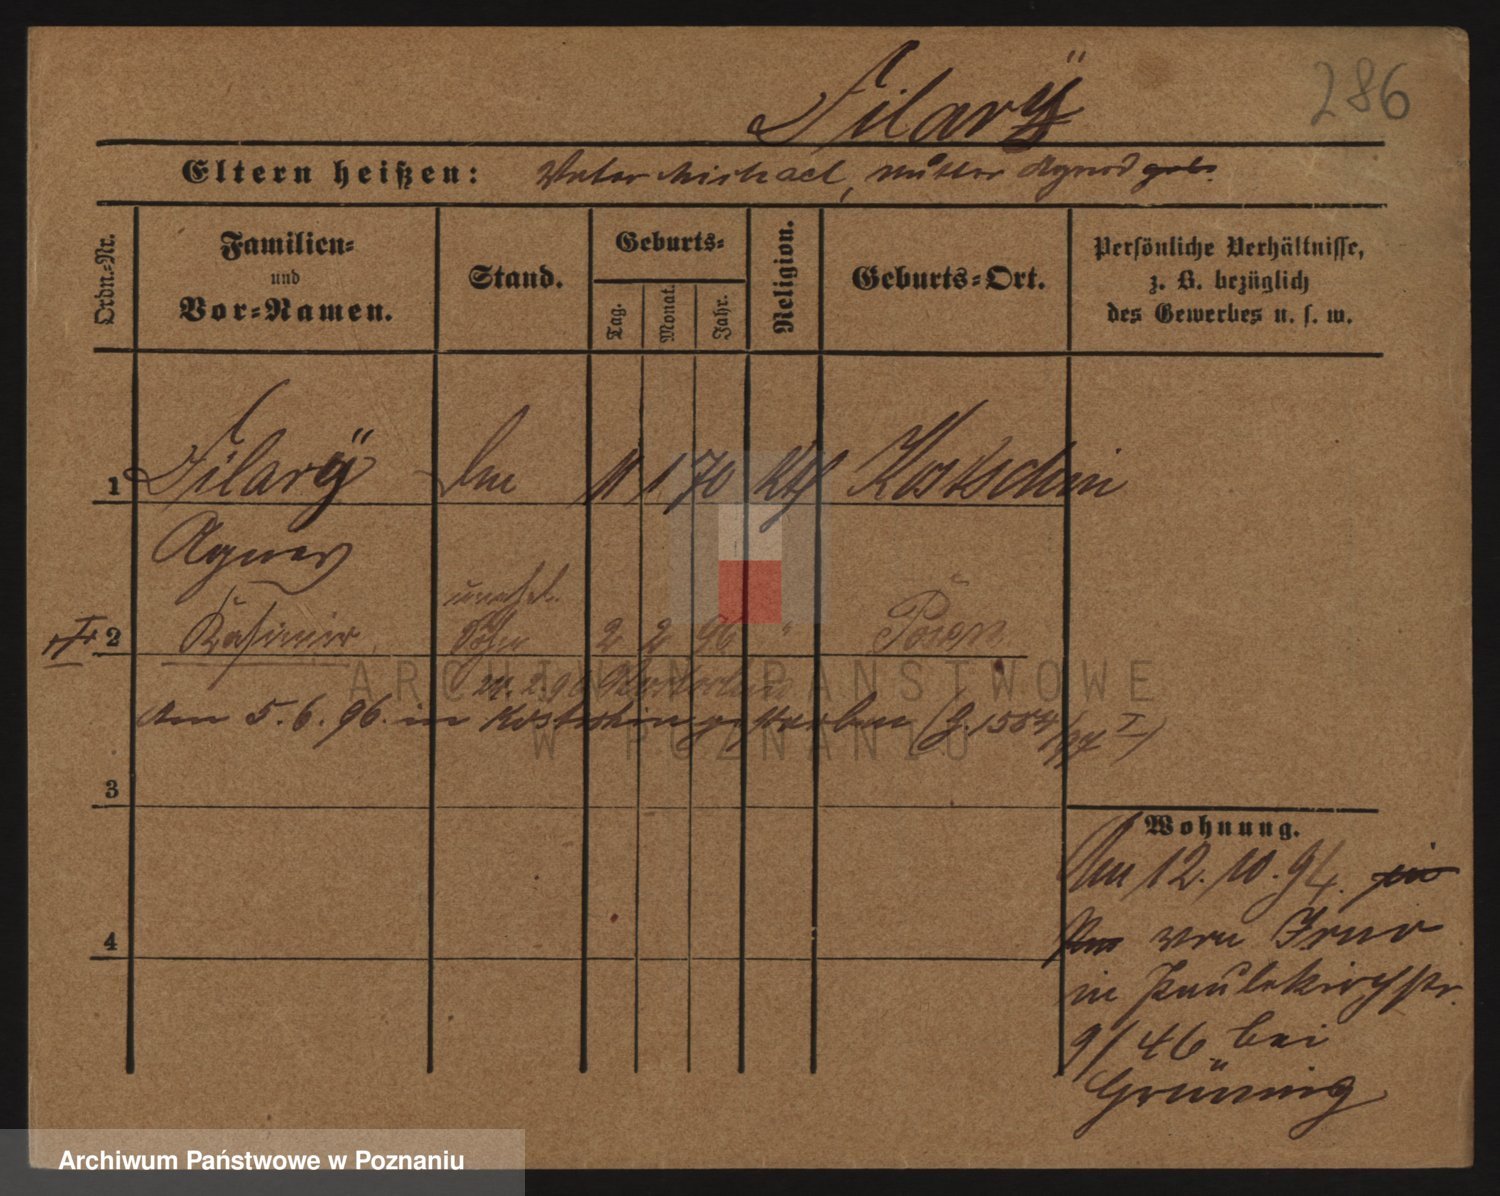 286
Filarÿ
Eltern heißen: Vater Michael, Mutter Agnes geb.
Ordn.-Nr.
Familien- und Vor-Namen.
Stand.
Geburts-
Tag.
Monat.
Jahr.
Religion.
Geburts-Ort.
Persönliche Verhältnisse,
z. B. bezüglich
des Gewerbes u. s. w.
1 Filarÿ 11 1 70 Kth Kostschin
Agnes
unehel.
2 Kasimir Sohn 2 2 96 " Posen
ARCHIWUM PAŃSTWOWE
W POZNANIU
am 5. 6. 96. in Kostschin gestorben (J. 1554/96 I)
3
4
Wohnung.
Am 12. 10. 94.
von
in Paulikirchstr.
9/46 bei
Grüning
Archiwum Państwowe w Poznaniu